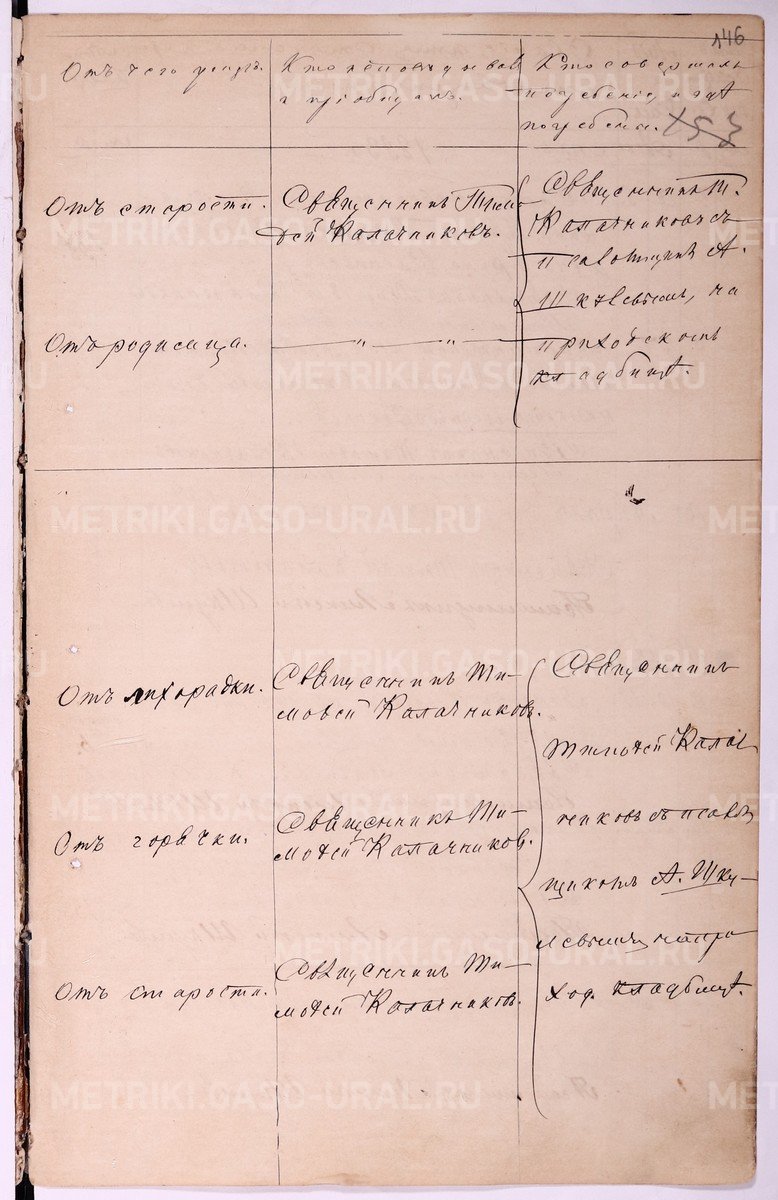 146
Отъ чего умеръ.
Кто исповѣдывал
и пріобщалъ.
Кто совершалъ
погребеніе, и гдѣ
погребены.
153
Отъ старости.
Священникъ Тимо
ѳей Калачниковъ.
Священникъ Т.
Калачниковъ съ
псаломщикъ А.
на
приходскомъ
кладбищѣ.
Отъ родимца.
— " — " —
Отъ лихорадки.
Священникъ Ти-
моѳей Калачниковъ.
Священникъ
Тимоѳей Калач
никовъ съ псалом
щикомъ А. Шку-
Отъ горячки.
Священникъ Ти-
моѳей Калачников.
левымъ, на при
ход. кладбищѣ.
Отъ старости.
Священникъ Ти-
моѳей Калачниковъ.
METRIKI.GASO-URAL.RU